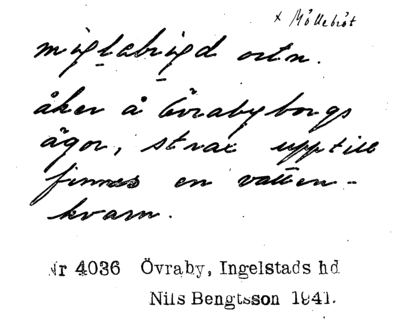 x Möllebröt
ortn.
åker å Övrabyborgs
ägor, strax upptill
finnes en vatten-
kvarn.
Nr 4036 Övraby, Ingelstads hd
Nils Bengtsson 1941.